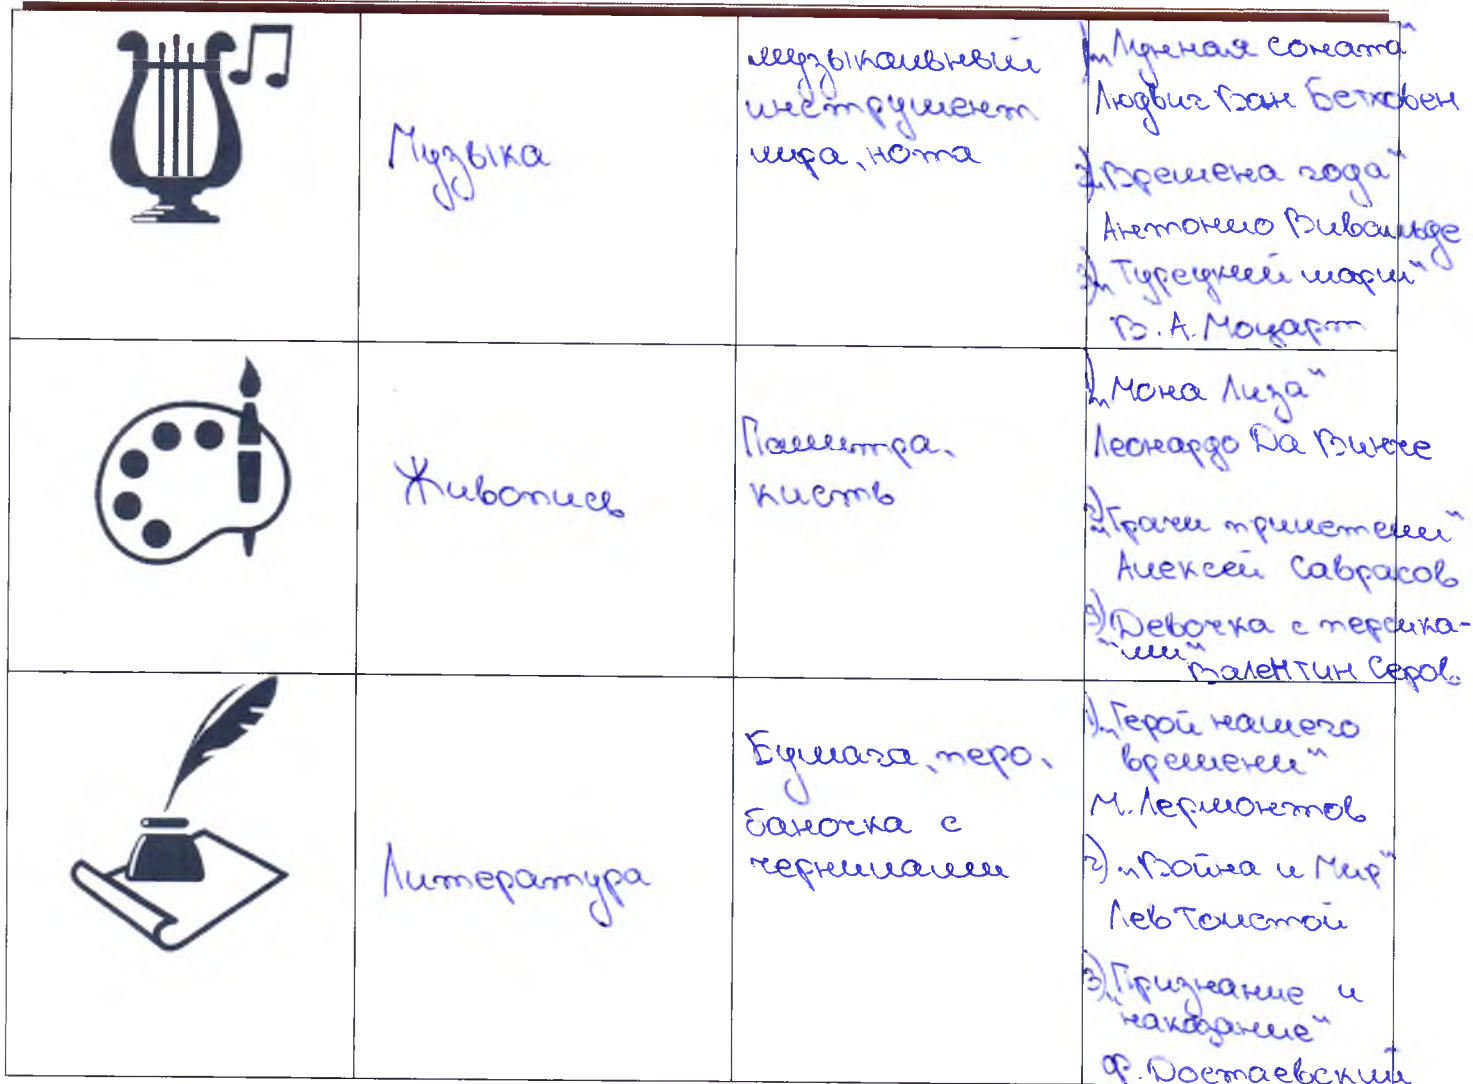 Музыка
музыкальный
инструмент
лира, нота
1) „Лунная соната“
Людвиг Ван Бетховен
2) „Времена года“
Антонио Вивальде
3) „Турецкий марш“
В. А. Моцарт
Живопись
Палитра,
кисть
1) „Мона Лиза“
Леонардо Да Винче
2) „Грачи прилетели“
Алексей Саврасов
3) „Девочка с персика-
ми“ Валентин Серов.
Литература
Бумага, перо,
баночка с
чернилами
1) „Герой нашего
времени“
М. Лермонтов
2) „Война и Мир“
Лев Толстой
3) „Признание и
наказание“
Ф. Достаевский